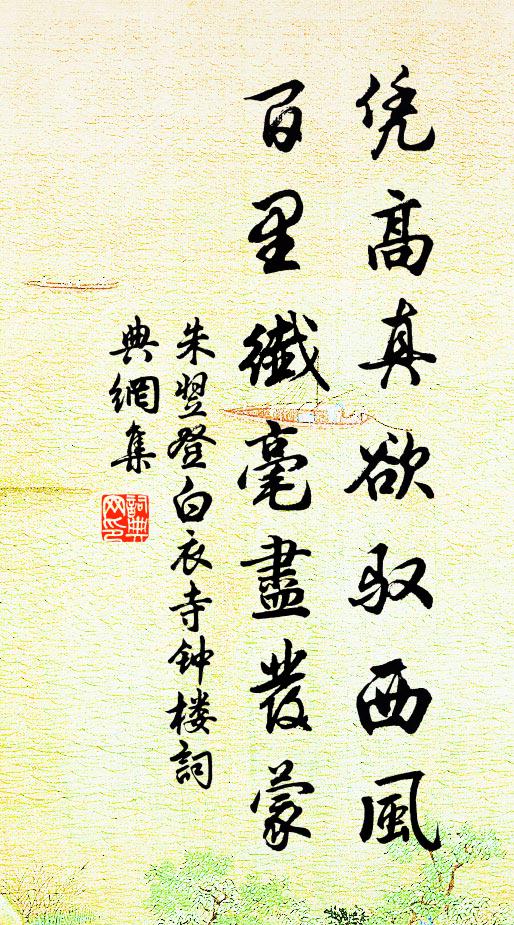 凭高真欲驭西风
百里纖毫盡發蒙
朱翌登白衣寺钟楼詞
典網集
詞典
网印